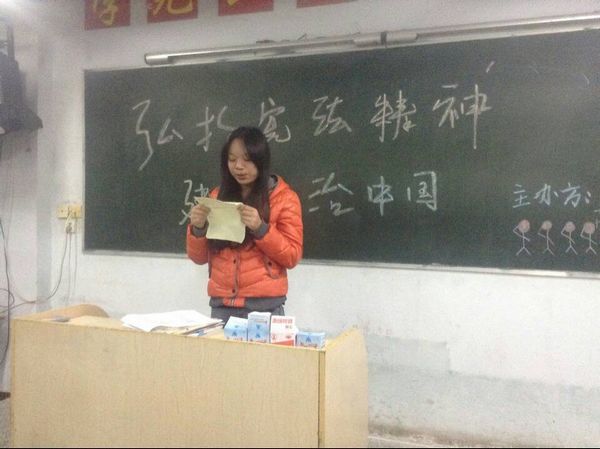 弘扬宪法精神
建 治中国
主办方: